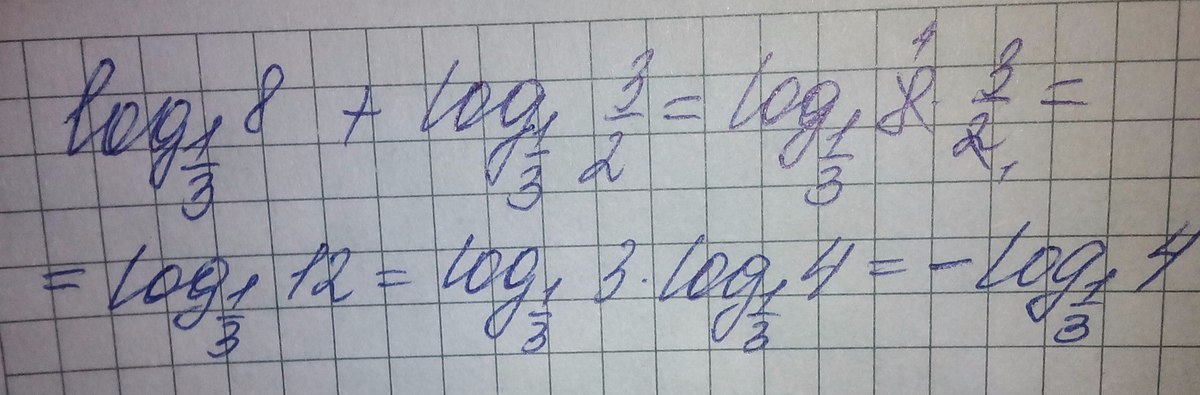 log_{1/3} 8 + log_{1/3} 3/2 = log_{1/3} 8̸^4 · 3/2̸_1 =
= log_{1/3} 12 = log_{1/3} 3 · log_{1/3} 4 = - log_{1/3} 4